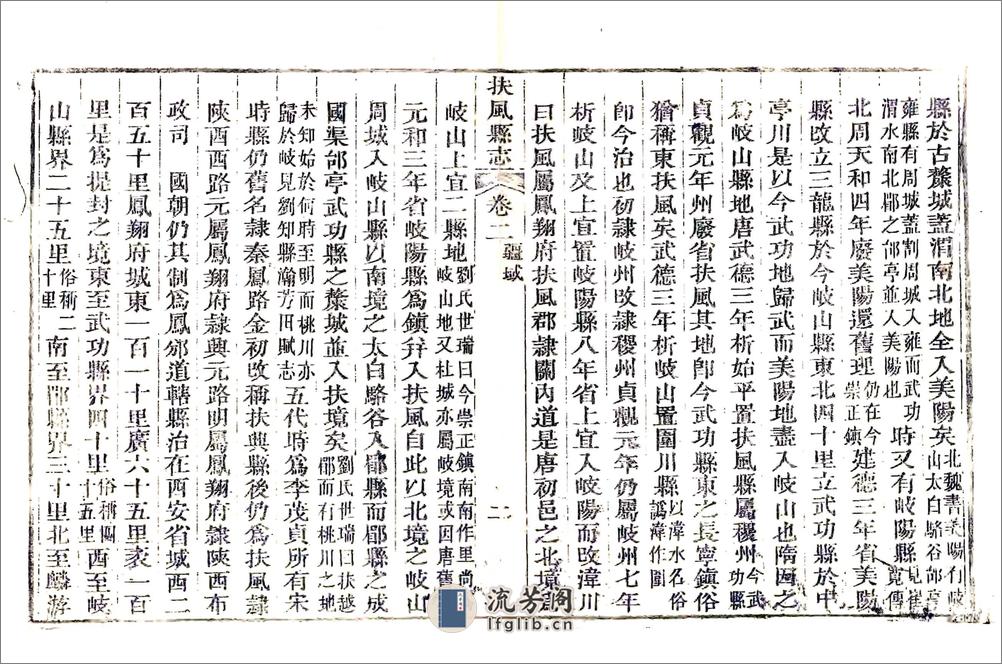 縣於古斄城蓋渭南北地全入美陽矣北魏書美陽有岐山太白駱谷邰亭
雍縣有周城蓋割周城入雍而武功渭水南北郿之邰亭並入美陽也時又有岐陽縣見崔寬傳
北周天和四年廢美陽還舊理仍在今崇正鎮建德三年省美陽
縣改立三龍縣於今岐山縣東北四十里立武功縣於中
亭川是以今武功地歸武而美陽地盡入岐山也隋因之
為岐山縣地唐武德三年析始平置扶風縣屬稷州今武功縣
貞觀元年州廢省扶風其地即今武功縣東之長寧鎮俗
猶稱東扶風矣武德三年析岐山置圍川縣以湋水名俗譌湋作圍
即今治也初隸岐州改隸稷州貞觀元年仍屬岐州七年
析岐山及上宜置岐陽縣八年省上宜入岐陽而改湋川
曰扶風屬鳳翔府扶風郡隸關內道是唐初邑之北境
扶風縣志 卷二 疆域 二
岐山上宜二縣地劉氏世瑞曰今崇正鎮南南作里尚岐山地又杜城亦屬岐境或因唐舊
元和三年省岐陽縣為鎮并入扶風自此以北境之岐山
周城入岐山縣以南境之太白駱谷入郿縣而郿縣之成
國渠邰亭武功縣之斄城並入扶境矣劉氏世瑞曰扶越郿而有桃川之地
未知始於何時至明而桃川亦歸於岐見劉知縣瀚芳田賦志五代時為李茂貞所有宋
時縣仍舊名隸秦鳳路金初改稱扶興縣後仍為扶風隸
陝西西路元屬鳳翔府隸興元路明屬鳳翔府隸陝西布
政司 國朝仍其制為鳳邠道轄縣治在西安省城西二
百五十里鳳翔府城東一百一十里廣六十五里袤一百
里是為提封之境東至武功縣界四十里俗稱四十五里西至岐
山縣界二十五里俗稱二十里南至郿縣界三十里北至麟游
流芳阁
lfglib.cn